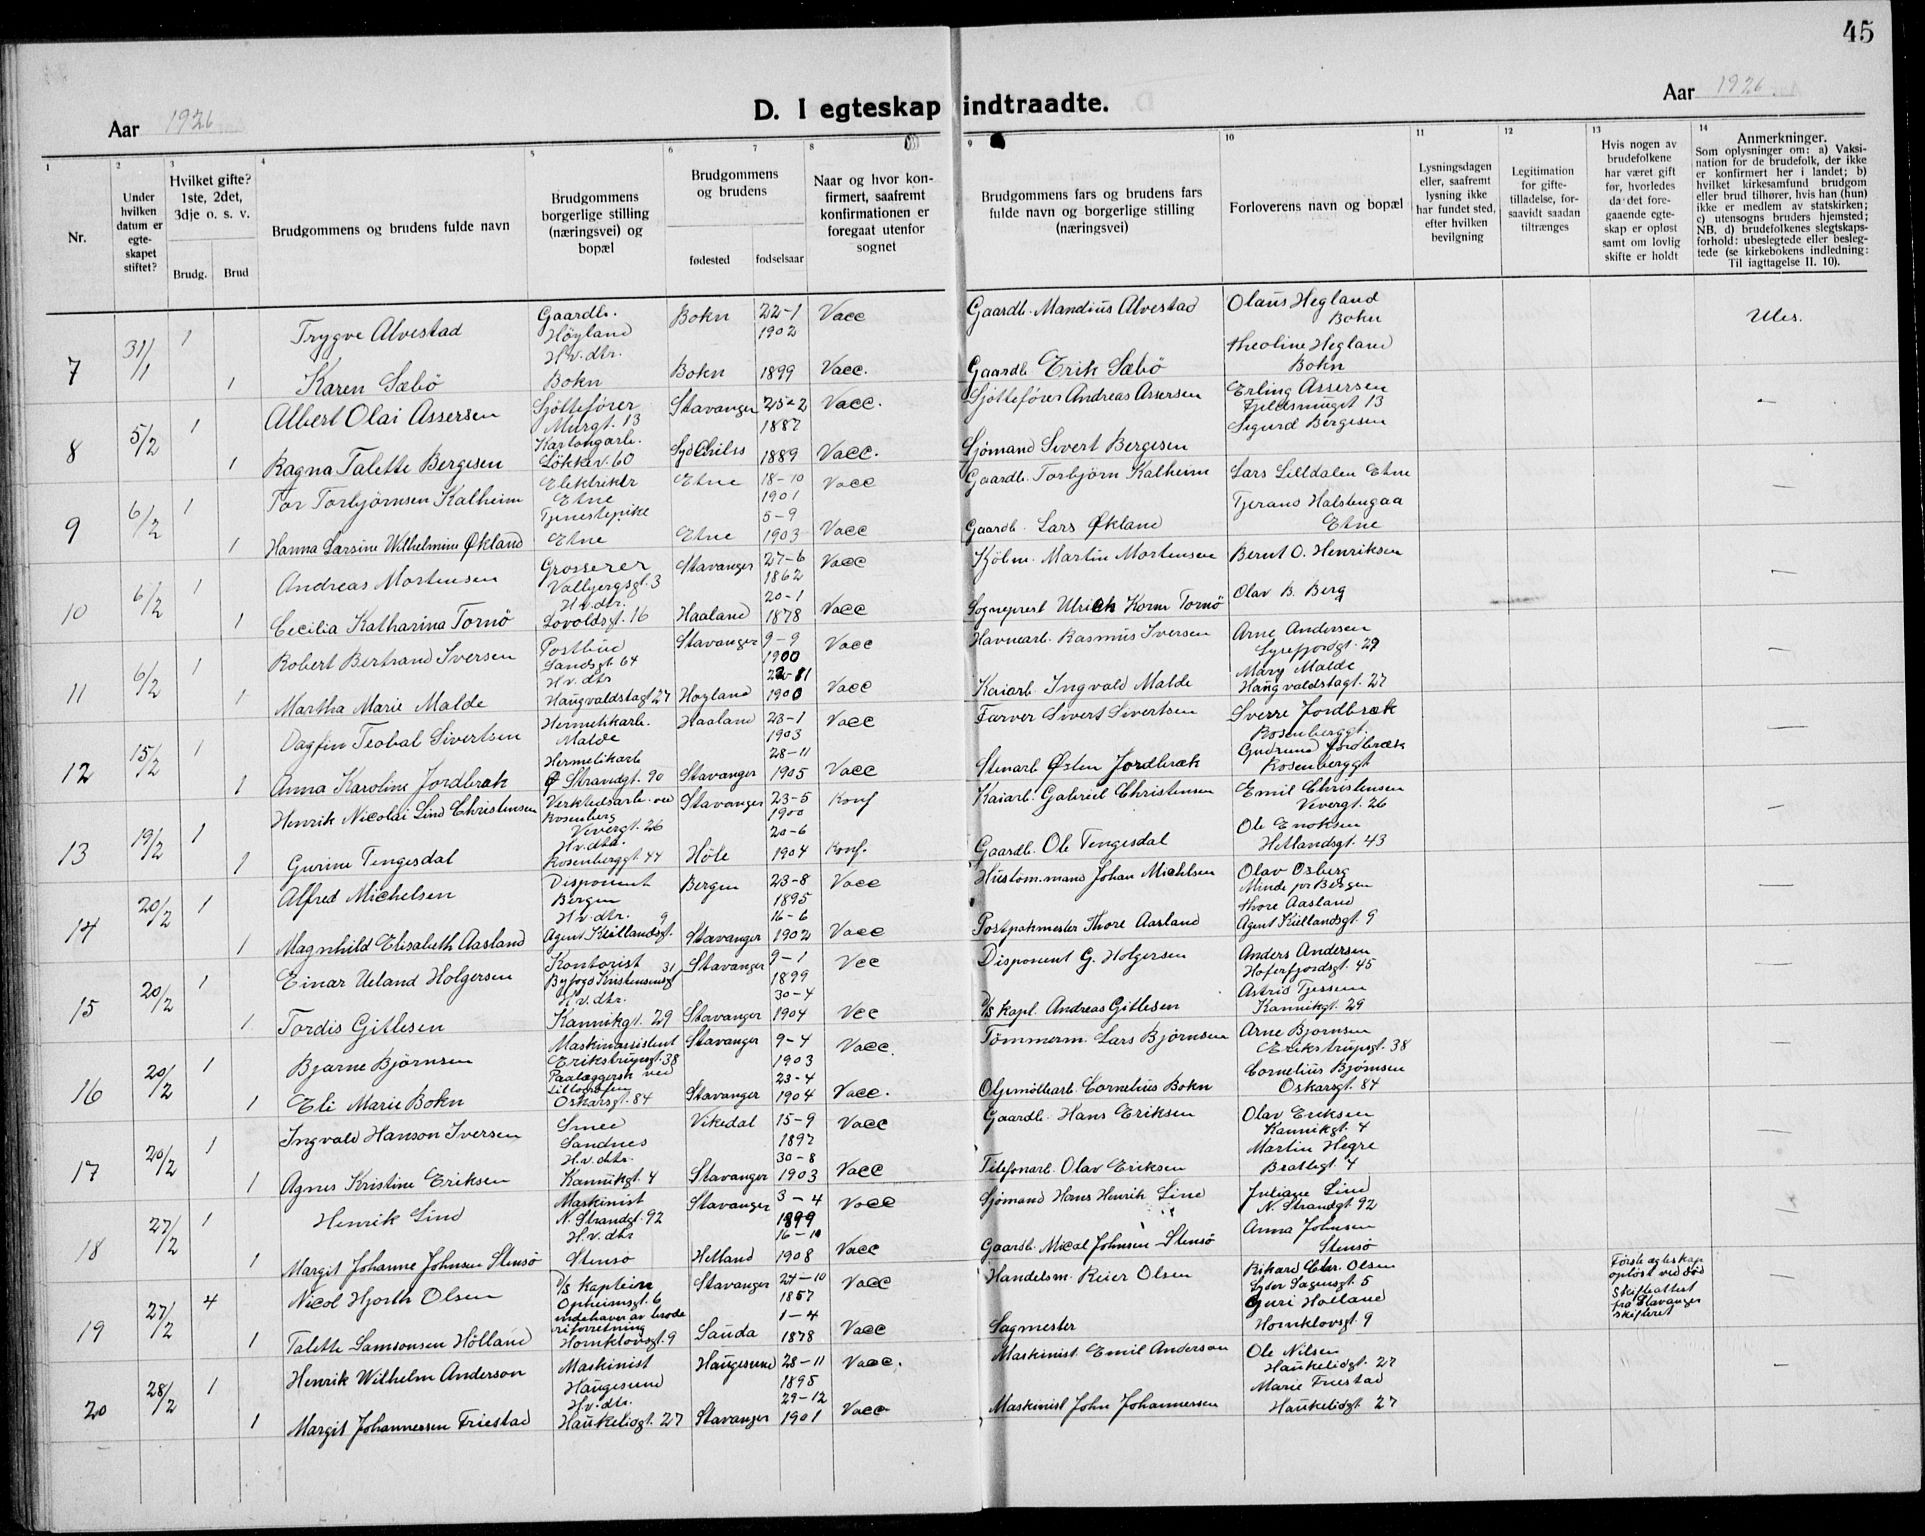 45
Aar 1926
D. I egteskap indtraadte.
Aar 1926
1 2 3 4 5 6 7 8 9 10 11 12 13 14
Nr.
Under hvilken datum er egteskapet stiftet?
Hvilket gifte? 1ste, 2det, 3dje o. s. v.
Brudg. Brud
Brudgommens og brudens fulde navn
Brudgommens borgerlige stilling (næringsvei) og bopæl
Brudgommens og brudens
fødested fødselsaar
Naar og hvor konfirmert, saafremt konfirmationen er foregaat utenfor sognet
Brudgommens fars og brudens fars fulde navn og borgerlige stilling (næringsvei)
Forloverens navn og bopæl
Lysningsdagen eller, saafremt lysning ikke har fundet sted, efter hvilken bevilgning
Legitimation for giftetilladelse, forsaavidt saadan tiltrænges
Hvis nogen av brudefolkene har været gift før, hvorledes da det foregaaende egteskap er opløst samt om lovlig skifte er holdt
Anmerkninger.
Som oplysninger om: a) Vaksination for de brudefolk, der ikke er konfirmert her i landet; b) hvilket kirkesamfund brudgom eller brud tilhører, hvis han (hun) ikke er medlem av statskirken; c) utensogns bruders hjemsted; NB. d) brudefolkenes slegtskapsforhold: ubeslegtede eller beslegtede (se kirkebokens indledning: Til iagttagelse II. 10).
7 31/1 1 Trygve Alvestad Gaardbr. Høyland Bokn 22-1 1902 Vacc Gaardb. Mandius Alvestad Olaus Hegland Bokn Ubes.
1 Karen Sæbö H.v.dtr. Bokn Bokn 1899 Vacc. Gaardb Erik Sæbö Theoline Hegland Bokn
8 5/2 1 Albert Olai Assersen Sjöttefører Murgt. 13 Stavanger 25-2 1887 Vacc. Sjöttefører Andreas Assersen Erling Assersen Fjeldsmuget 13 —
1 Ragna Talette Bergesen Kartongarb. Løkkev. 60 1889 Vacc. Sjømand Sivert Bergesen Sigurd Bergesen
9 6/2 1 Tor Torbjørnsen Kalheim Elektriker Etne Etne 18-10 1901 Vacc Gaardb. Torbjørn Kalheim Lars Lilldalen Etne —
1 Hanna Larsine Wilhelmine Økland Tjenestepike Etne Etne 5-9 1903 Vacc Gaardb. Lars Økland Tjerand Halstengaa Etne
10 6/2 1 Andreas Mortensen Grosserer Valbjergsgt. 3 Stavanger 27-6 1862 Vacc Kjøbm. Martin Mortensen Bernt O. Henriksen —
1 Cecilia Katharina Tornö H.v.dtr. Lovoldsgt. 16 Haaland 20-1 1878 Vacc Sogneprest Ulrich Korm Tornö Olav B. Berg
11 6/2 1 Robert Bertrand Iversen Postbud Sandsgt. 64 Stavanger 9-9 1900 Vacc Havnearb. Rasmus Iversen Arne Andersen Lysefjordgt. 29 —
1 Martha Marie Malde H.v.dtr Haugvaldstagt 27 Høyland 1900 Vacc Kaiarb Ingvald Malde Mary Malde Haugvaldstagt. 27
12 15/2 1 Dagfin Teobal Sivertsen Hermetikarb. Malde Haaland 23-1 1903 Vacc Farver Sivert Sivertsen Sverre Jordbræk Rosenberggt. —
1 Anna Karoline Jordbræk Hermetikarb Ø Strandgt. 90 Stavanger 28-11 1905 Vacc Stenarb Østen Jordbræk Gudrund Jordbræk Rosenberggt
13 19/2 1 Henrik Nicolai Lind Christensen Verkstedsarb. ved Rosenberg Vevergt. 26 Stavanger 23-5 1900 Konf Kaiarb. Gabriel Christensen Emil Christensen Vevergt. 26 —
1 Gurine Tengesdal H.v.dtr. Rosenberggt 44 Høle 20-6 1904 Konf. Gaardb. Ole Tengesdal Ole Enoksen Hetlandsgt. 43
14 20/2 1 Alfred Michelsen Disponent Bergen Bergen 23-8 1895 Vacc Hustøm.mand Johan Michelsen Olav Osberg Minde pr Bergen —
1 Magnhild Elisabeth Aasland H.v.dtr. Agent Kiellandsgt. 9 Stavanger 16-6 1902 Vacc Postpakmester Thore Aasland Thore Aasland Agent Kiellandsgt. 9
15 20/2 1 Einar Ueland Holgersen Kontorist Byfogd Kristensensgt 31 Stavanger 9-1 1899 Vcc Disponent G. Holgersen Anders Andersen Hafrsfjordsgt. 45 —
1 Tordis Gitlesen H.v.dtr. Kannikgt. 29 Stavanger 30-4 1904 Vcc D/S Kapt. Andreas Gitlesen Astrid Tjessem Kannikgt. 29
16 20/2 1 Bjarne Bjørnsen Maskinassistent Erikstrupsgt. 38 Stavanger 9-4 1903 Vacc. Tømmerm. Lars Bjørnsen Arne Bjørnsen Erikstrupsgt. 38 —
1 Eli Marie Bokn Paalæggersk ved Litografen Oskarsgt. 84 Stavanger 23-4 1904 Vacc. Oljemøllearb. Cornelius Bokn Cornelius Bjørnsen Oskarsgt. 84
17 20/2 1 Ingvald Hanson Iversen Smed Sandnes Vikedal 15-9 1897 Vacc Gaardb. Hans Eriksen Olav Eriksen Kannikgt. 4 —
1 Agnes Kristine Eriksen H.v.dtr. Kannikgt. 4 Stavanger 30-8 1903 Vacc Telefonarb. Olav Eriksen Martin Hegre Brattegt. 4
18 27/2 1 Henrik Lind Maskinist N. Strandgt. 92 Stavanger 3-4 1899 Vacc Sjømand Hans Henrik Lind Juliane Lind N. Strandgt 92 —
1 Margit Johanne Johnsen Stensö H.v.dtr Stensø Hetland 16-10 1908 Vacc Gaardb. Mical Johnsen Stensö Anna Johnsen Stensø
19 27/2 4 Nicol Hjorth Olsen D/S Kaptein Opheimsgt. 6 Stavanger 24-10 1857 Vacc Handelsm. Reier Olsen Rikard Chr. Olsen Lyder Sagensgt. 5 Første egteskap opløst ved død Skifteattest fra Stavanger skifteret
1 Talette Samsonsen Hölland indehaver av broderiforretning Hornklovsgt. 9 Sauda 1-4 1878 Vacc Sagmester Guri Holland Hornklovsgt. 9
20 28/2 1 Henrik Wilhelm Anderson Maskinist Haugesund Haugesund 28-11 1895 Vacc. Maskinist Emil Anderson Ole Nilsen Haukelidgt. 27 —
1 Margit Johannessen Friestad H.v.dtr. Haukelidgt. 27 Stavanger 29-12 1901 Vacc Maskinist John Johannessen Marie Friestad Haukelidgt 27